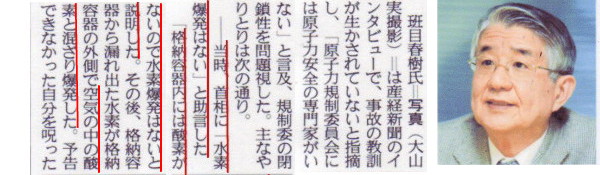 班目春樹氏＝写真（大山
実撮影）＝は産経新聞のイ
ンタビューで、事故の教訓
が生かされていないと指摘
し、「原子力規制委員会に
は原子力安全の専門家がい
ない」と言及、規制委の閉
鎖性を問題視した。主なや
りとりは次の通り。
――当時、首相に「水素
爆発はない」と助言した
「格納容器内には酸素が
ないので水素爆発はないと
説明した。その後、格納容
器から漏れ出た水素が格納
容器の外側で空気の中の酸
素と混ざり爆発した。予告
できなかった自分を呪った